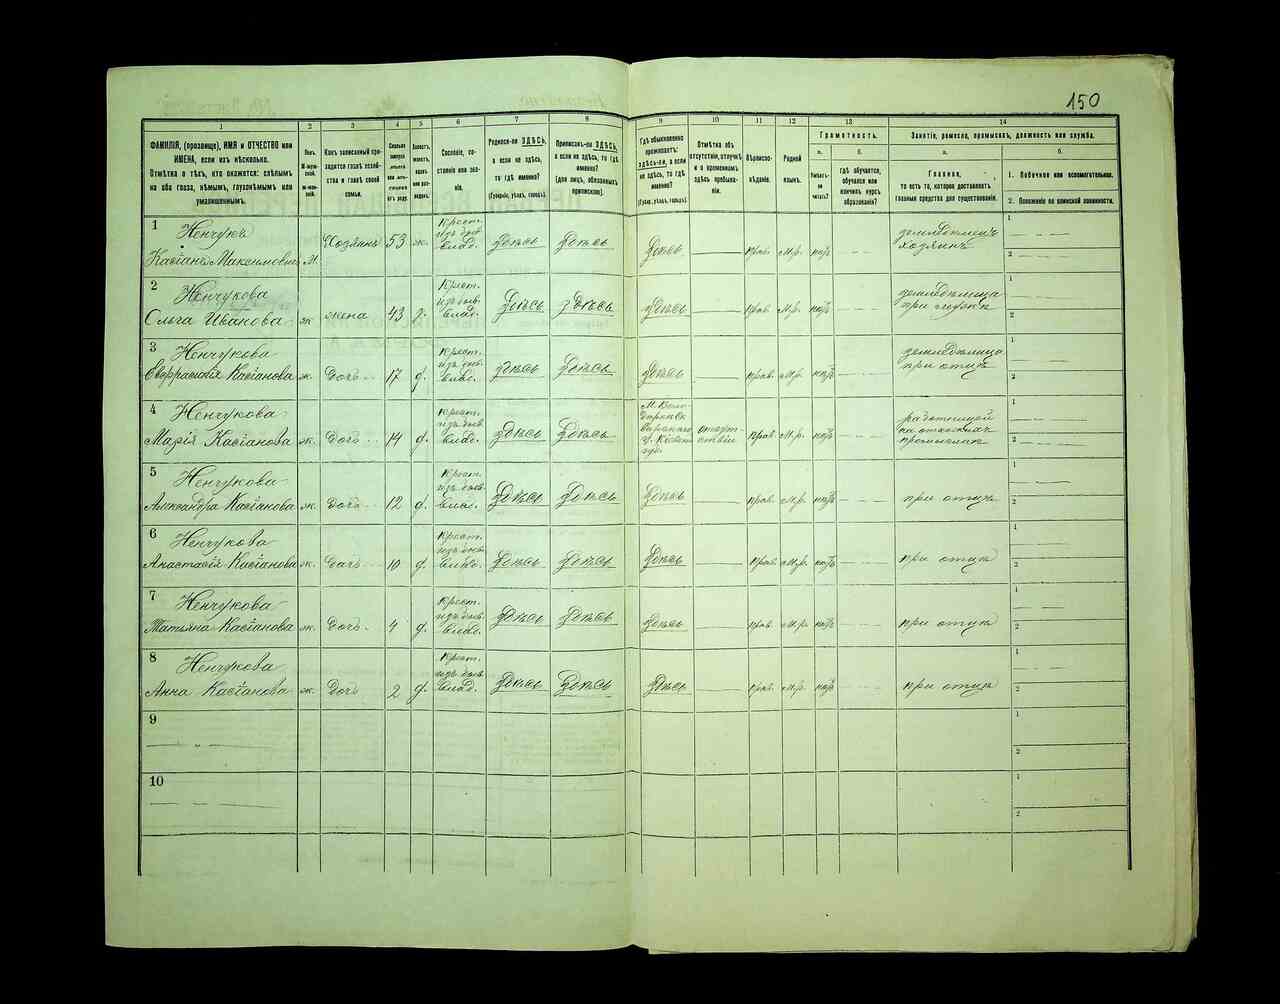 150
1 2 3 4 5 6 7 8 9 10 11 12 13 14
ФАМИЛІЯ, (прозвище), ИМЯ И ОТЧЕСТВО или
ИМЕНА, если ихъ нѣсколько.
Отмѣтка о тѣхъ, кто окажется: слѣпымъ
на оба глаза, нѣмымъ, глухонѣмымъ или
умалишеннымъ.
Полъ.
Какъ записанный приходится главѣ хозяйства и главѣ своей семьи.
Сословіе, состояніе или званіе.
Родился-ли ЗДѢСЬ,
а если не здѣсь,
то гдѣ именно?
(Губернія, уѣздъ, городъ).
Приписанъ-ли ЗДѢСЬ,
а если не здѣсь, то гдѣ
именно?
(для лицъ, обязанныхъ
припиской).
Гдѣ обыкновенно
проживаетъ:
здѣсь-ли, а если
не здѣсь, то гдѣ
именно?
(Губер., уѣздъ, городъ).
Отмѣтка объ
отсутствіи, отлучкѣ
и о временномъ
здѣсь пребываніи.
Вѣроисповѣданіе.
Родной
языкъ.
Грамотность.
а.
Умѣетъ-ли
читать?
б.
Гдѣ обучается,
обучался или
кончилъ курсъ
образованія?
Занятіе, ремесло, промыселъ, должность или служба.
а.
Главное,
то есть то, которое доставляетъ
главныя средства для существованія.
б.
1. Побочное или вспомогательное.
2. Положеніе по воинской повинности.
1 Ненчукъ
Касіанъ Максимовичъ М. Хозяинъ 53 ж. Крест. изъ быв. влад. Здѣсь Здѣсь Здѣсь Прав. М.р. нѣтъ земледѣлецъ хозяинъ 1 2
2 Ненчукова
Ольга Иванова ж жена 43 Крест. изъ быв. влад. Здѣсь Здѣсь Здѣсь Прав. М.р. нѣтъ земледѣлица при мужѣ 1 2
3 Ненчукова
Касіанова ж. Дочь 17 д. Крест. изъ быв. влад. Здѣсь Здѣсь Здѣсь Прав. М.р. нѣтъ земледѣлица при отцѣ 1 2
4 Ненчукова
Марія Касіанова ж. Дочь 14 д. Крест. изъ быв. влад. Здѣсь Здѣсь Прав. М.р. нѣтъ на отхожемъ промыслѣ 1 2
5 Ненчукова
Александра Касіанова ж. Дочь 12 д. Крест. изъ быв. влад. Здѣсь Здѣсь Здѣсь Прав. М.р. нѣтъ при отцѣ 1 2
6 Ненчукова
Анастасія Касіанова ж. Дочь 10 д. Крест. изъ быв. влад. Здѣсь Здѣсь Здѣсь Прав. М.р. нѣтъ при отцѣ 1 2
7 Ненчукова
Татьяна Касіанова ж. Дочь 4 д. Крест. изъ быв. влад. Здѣсь Здѣсь Здѣсь Прав. М.р. нѣтъ при отцѣ 1 2
8 Ненчукова
Анна Касіанова ж. Дочь 2 д. Крест. изъ быв. влад. Здѣсь Здѣсь Здѣсь Прав. М.р. нѣтъ при отцѣ 1 2
9 1 2
10 1 2